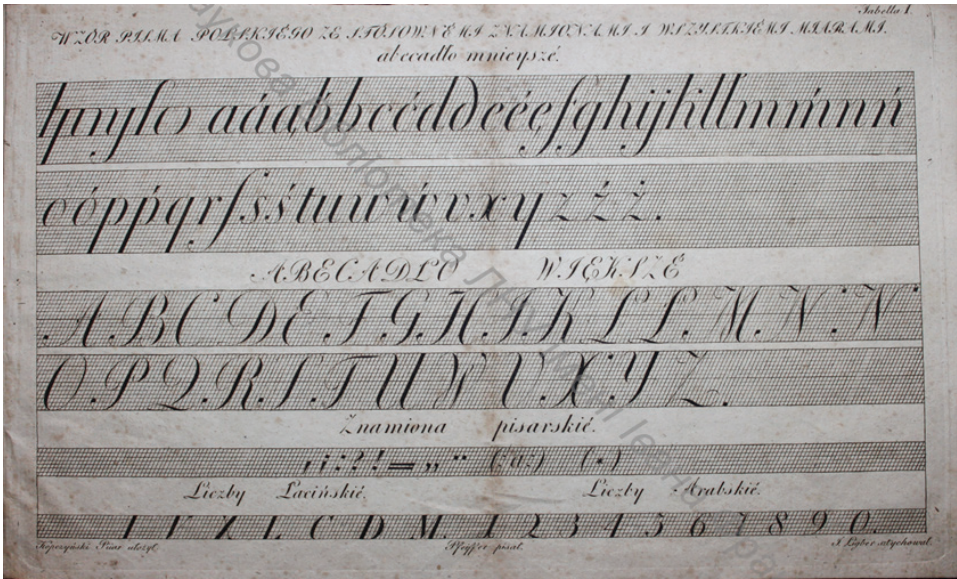 Tabella I.
WZÓR PISMA POLSKIÉGO ZE STÓSOWNÉMI ZNAMIONAMI I WSZYSTKIÉMI MIARAMI.
abecadło mnieysze.
a á ą b b́ c ć d d e é ę f g h i j k l ł m ḿ n ń
o ó p ṕ q r ſ s ś t u w ẃ v x y z ź ż.
ABECADŁO WIĘKSZÉ
A B C D E F G H I K L Ł M. N Ń
O. P Q. R. S. T U W V. X. Y Z.
Znamiona pisarskié.
, ; : ? ! = „ ¨ (:a:) (*)
Liczby Łacińskié. Liczby Arabskié.
I V X L C D M. 1 2 3 4 5 6 7 8 9 0.
Kopczyński Piiar ułożył Pfeyffer pisał. J. Ligber sztychował.